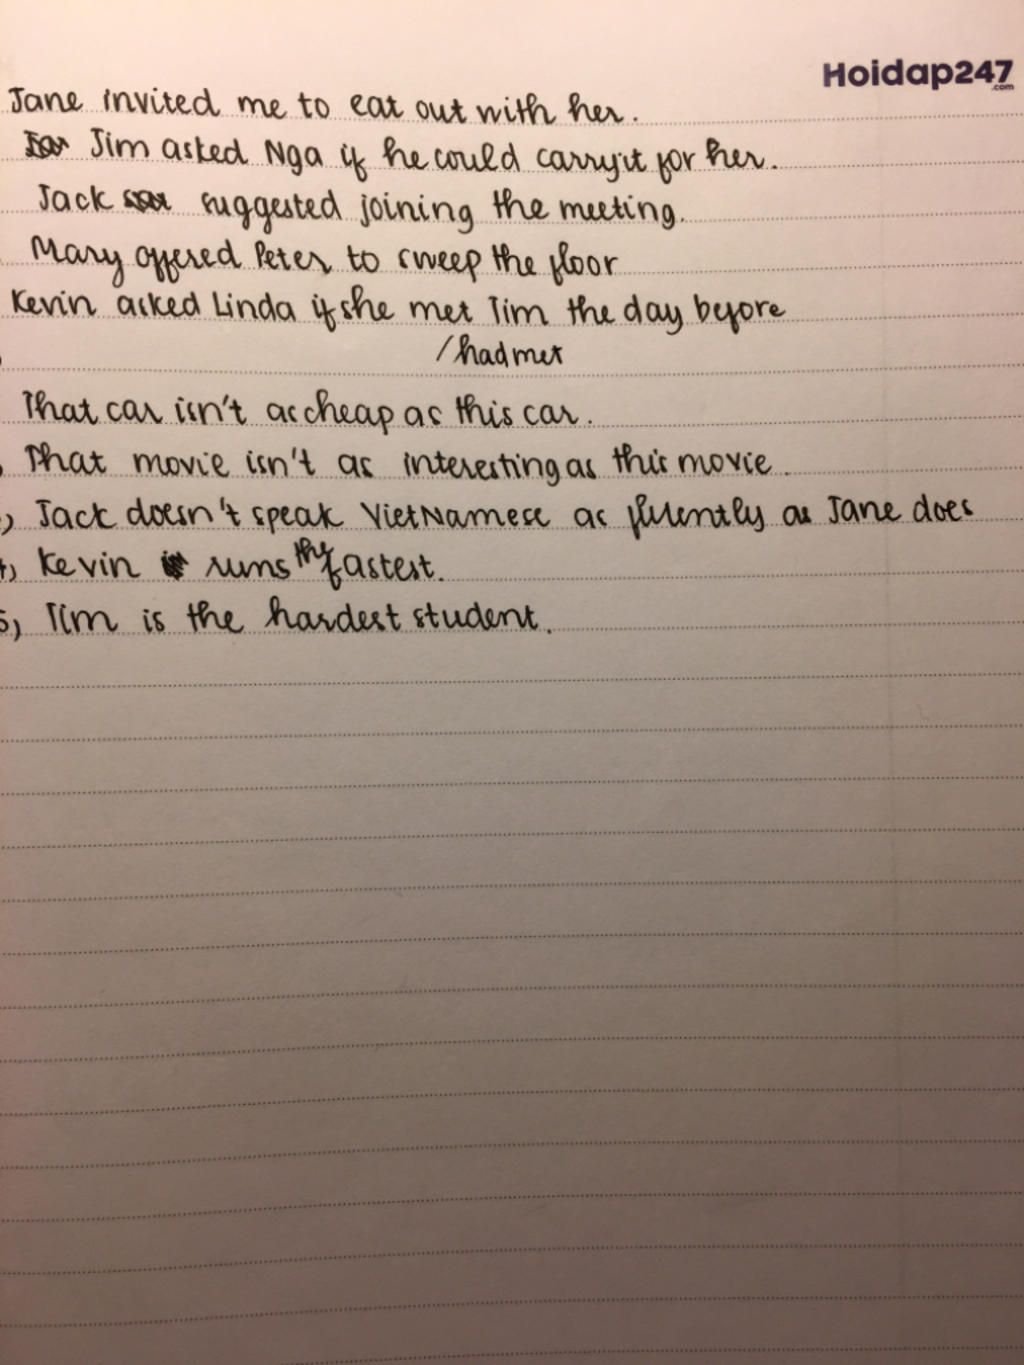 Hoidap247
.com
Jane invited me to eat out with her.
Jim asked Nga if he could carry it for her.
Jack suggested joining the meeting.
Mary offered Peter to sweep the floor
Kevin asked Linda if she met Tim the day before
/had met
That car isn't as cheap as this car.
That movie isn't as interesting as this movie.
) Jack doesn't speak VietNamese as fluently as Jane does
) Kevin runs the fastest.
5) Tim is the hardest student.